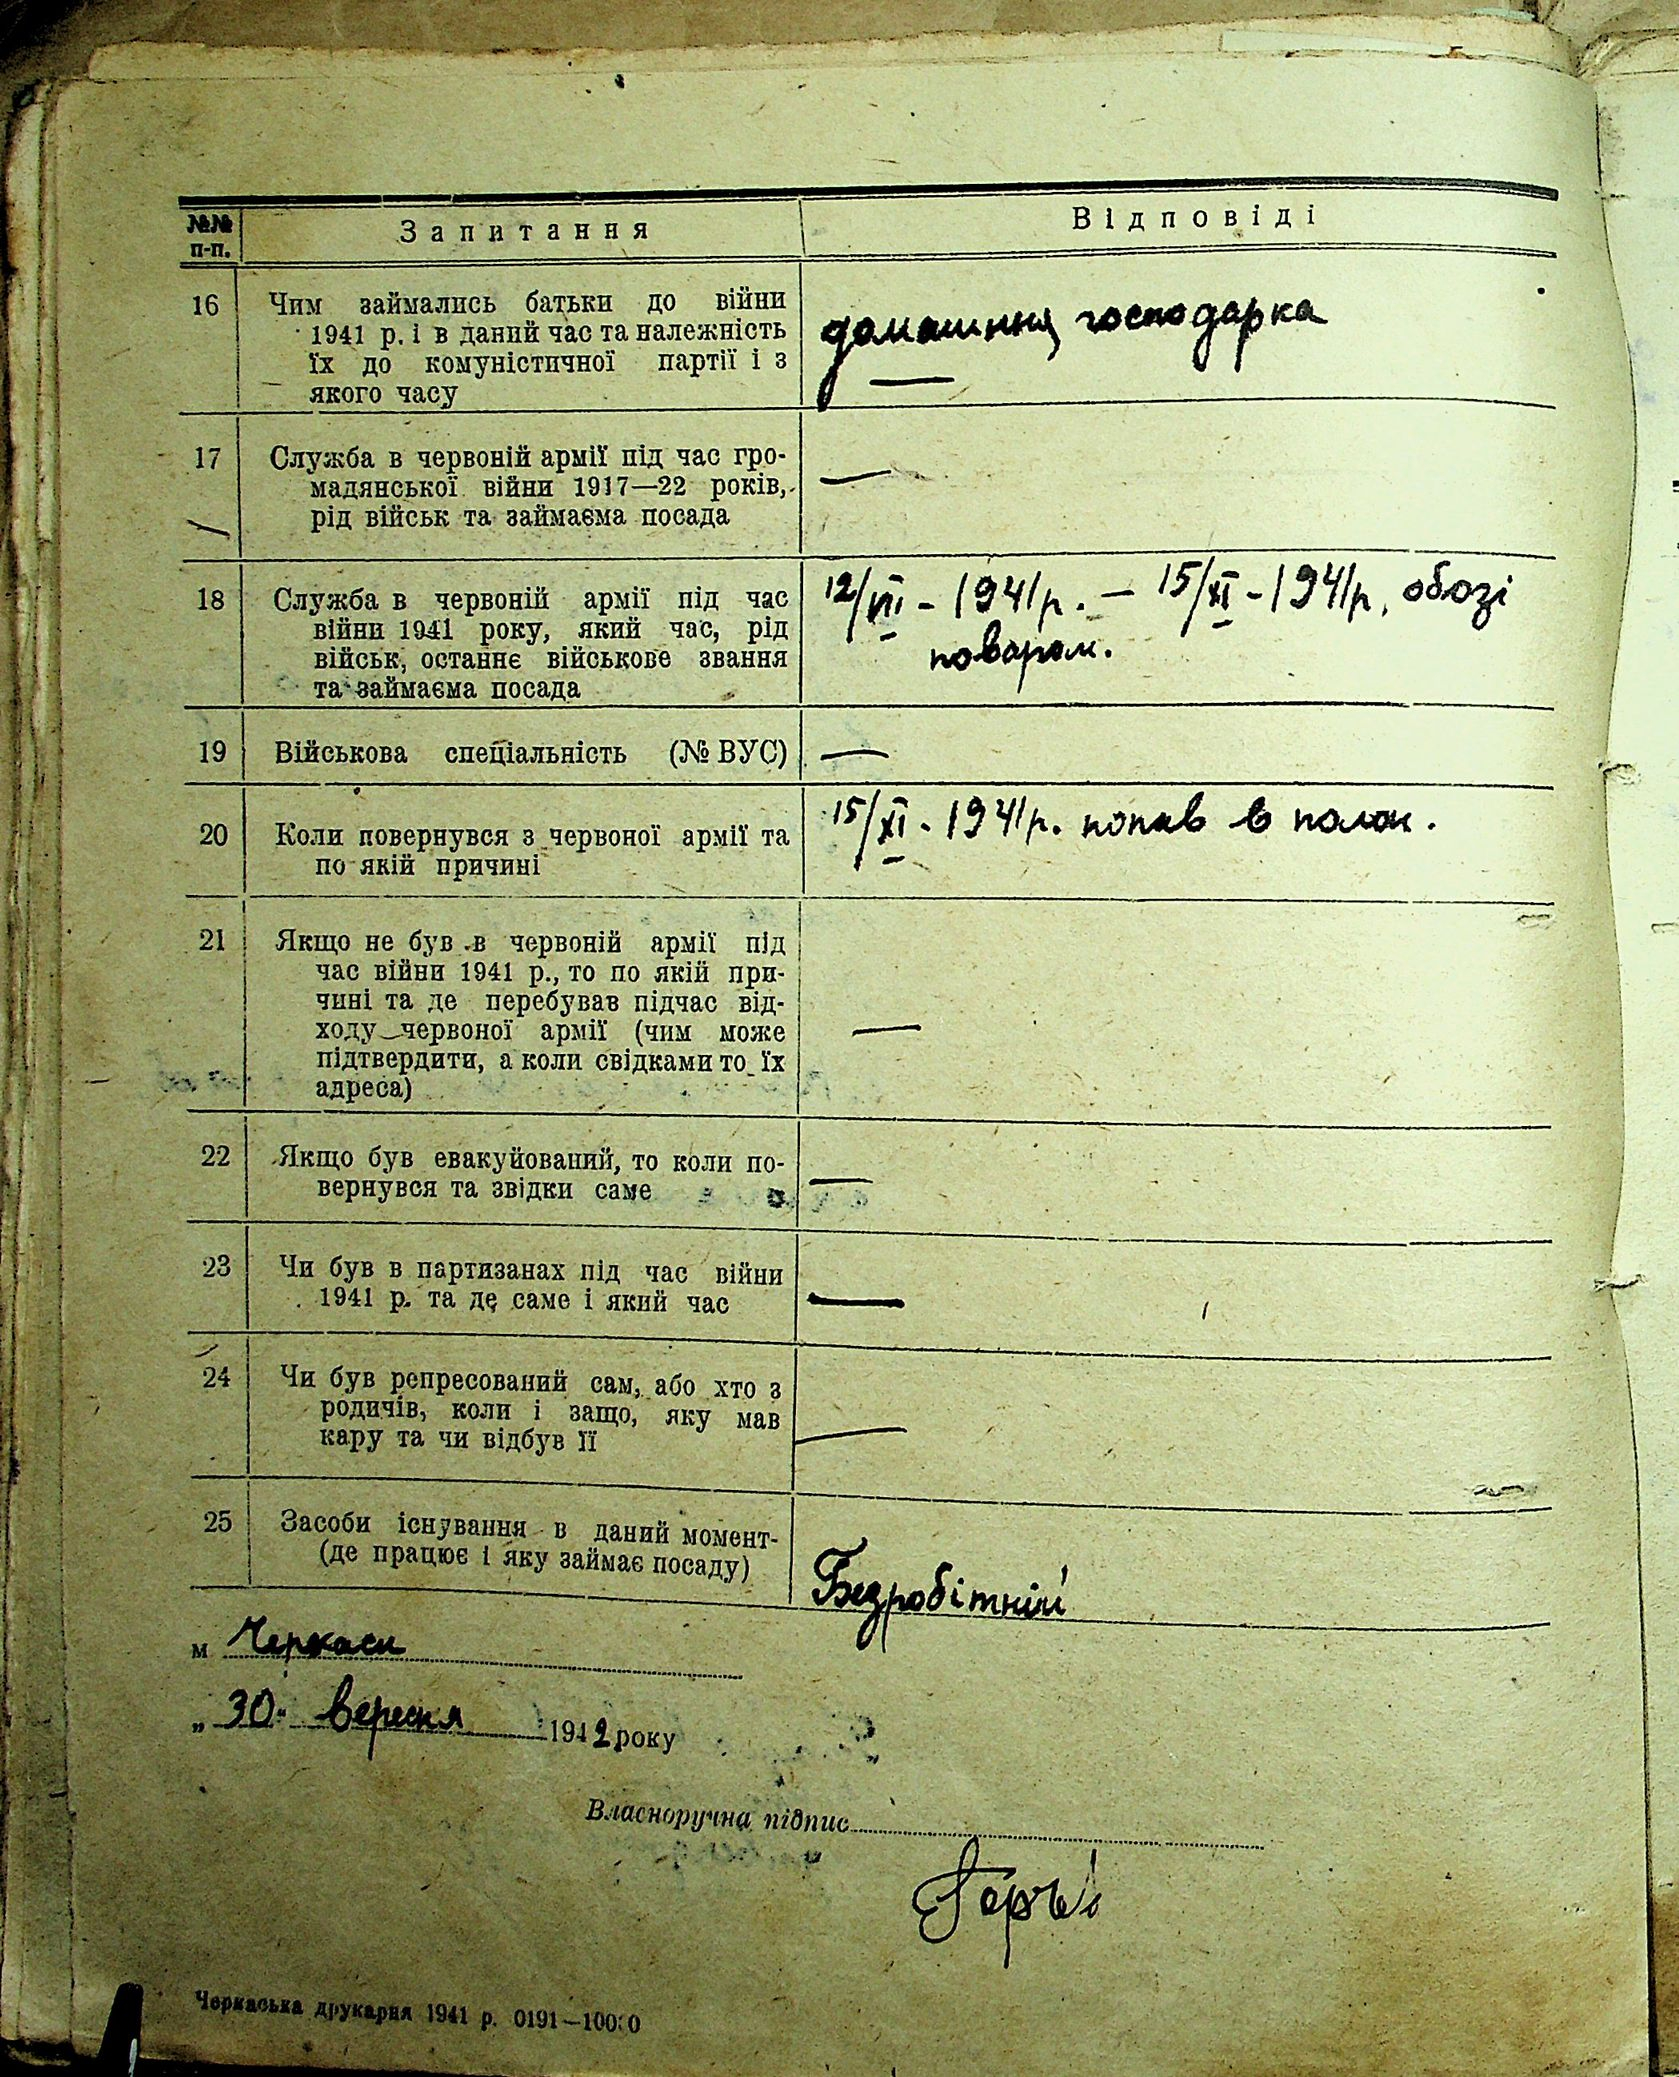 №№ п-п.
Запитання
Відповіді
16
Чим займались батьки до війни
1941 р. і в даний час та належність
їх до комуністичної партії і з
якого часу
домашння господарка
—
17
Служба в червоній армії під час гро-
мадянської війни 1917—22 років,
рід військ та займаєма посада
—
18
Служба в червоній армії під час
війни 1941 року, який час, рід
військ, останнє військове звання
та займаєма посада
12/VII - 1941р. — 15/XI - 1941р, обозі
поваром.
19
Військова спеціальність (№ ВУС)
—
20
Коли повернувся з червоної армії та
по якій причині
15/XI - 1941р. попав в полон.
21
Якщо не був в червоній армії під
час війни 1941 р., то по якій при-
чині та де перебував підчас від-
ходу червоної армії (чим може
підтвердити, а коли свідками то їх
адреса)
—
22
Якщо був евакуйований, то коли по-
вернувся та звідки саме
—
23
Чи був в партизанах під час війни
1941 р. та де саме і який час
—
24
Чи був репресований сам, або хто з
родичів, коли і защо, яку мав
кару та чи відбув її
—
25
Засоби існування в даний момент-
(де працює і яку займає посаду)
Безробітній
м Черкаси
„ 30 " вересня 1942 року
Власноручна підпис
Черкаська друкарня 1941 р. 0191—10000